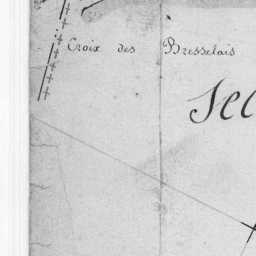 Croix des Bresselais
Sec